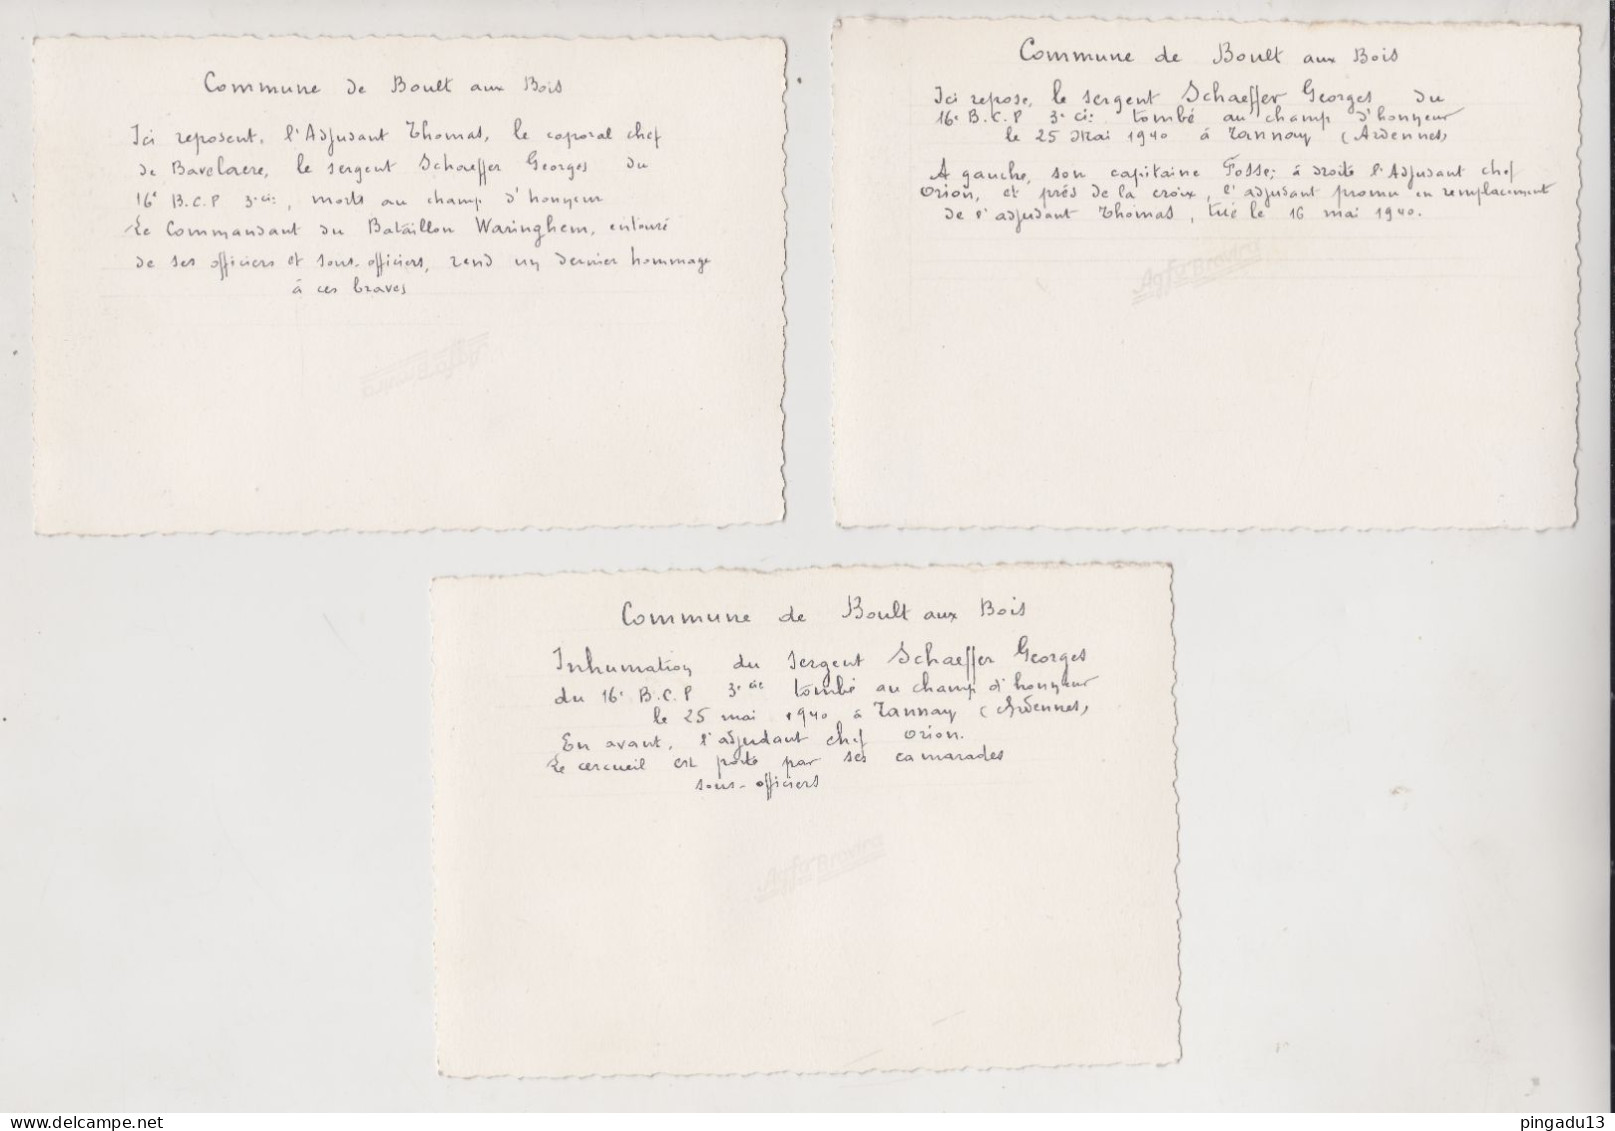 Commune de Boult aux Bois
Ici reposent, l'Adjudant Thomas, le caporal chef
de Bavelaere, le sergent Schaeffer Georges du
16e B.C.P 3e cie, morts au champ d'honneur
Le Commandant du Bataillon Waringhem, entouré
de ses officiers et sous-officiers, rend un dernier hommage
à ces braves
AgfaBrovira
Commune de Boult aux Bois
Ici repose, le sergent Schaeffer Georges du
16e B.C.P 3e cie tombé au champ d'honneur
le 25 Mai 1940 à Tannay (Ardennes)
A gauche, son capitaine Fosse; à droite l'Adjudant chef
Orion, et près de la croix, l'adjudant promu en remplacement
de l'adjudant Thomas, tué le 16 mai 1940.
AgfaBrovira
Commune de Boult aux Bois
Inhumation du sergent Schaeffer Georges
du 16e B.C.P 3e cie tombé au champ d'honneur
le 25 mai 1940 à Tannay (Ardennes)
En avant, l'adjudant chef Orion.
Le cercueil est porté par ses camarades
sous-officiers
AgfaBrovira
delcampe.net
pingadu13